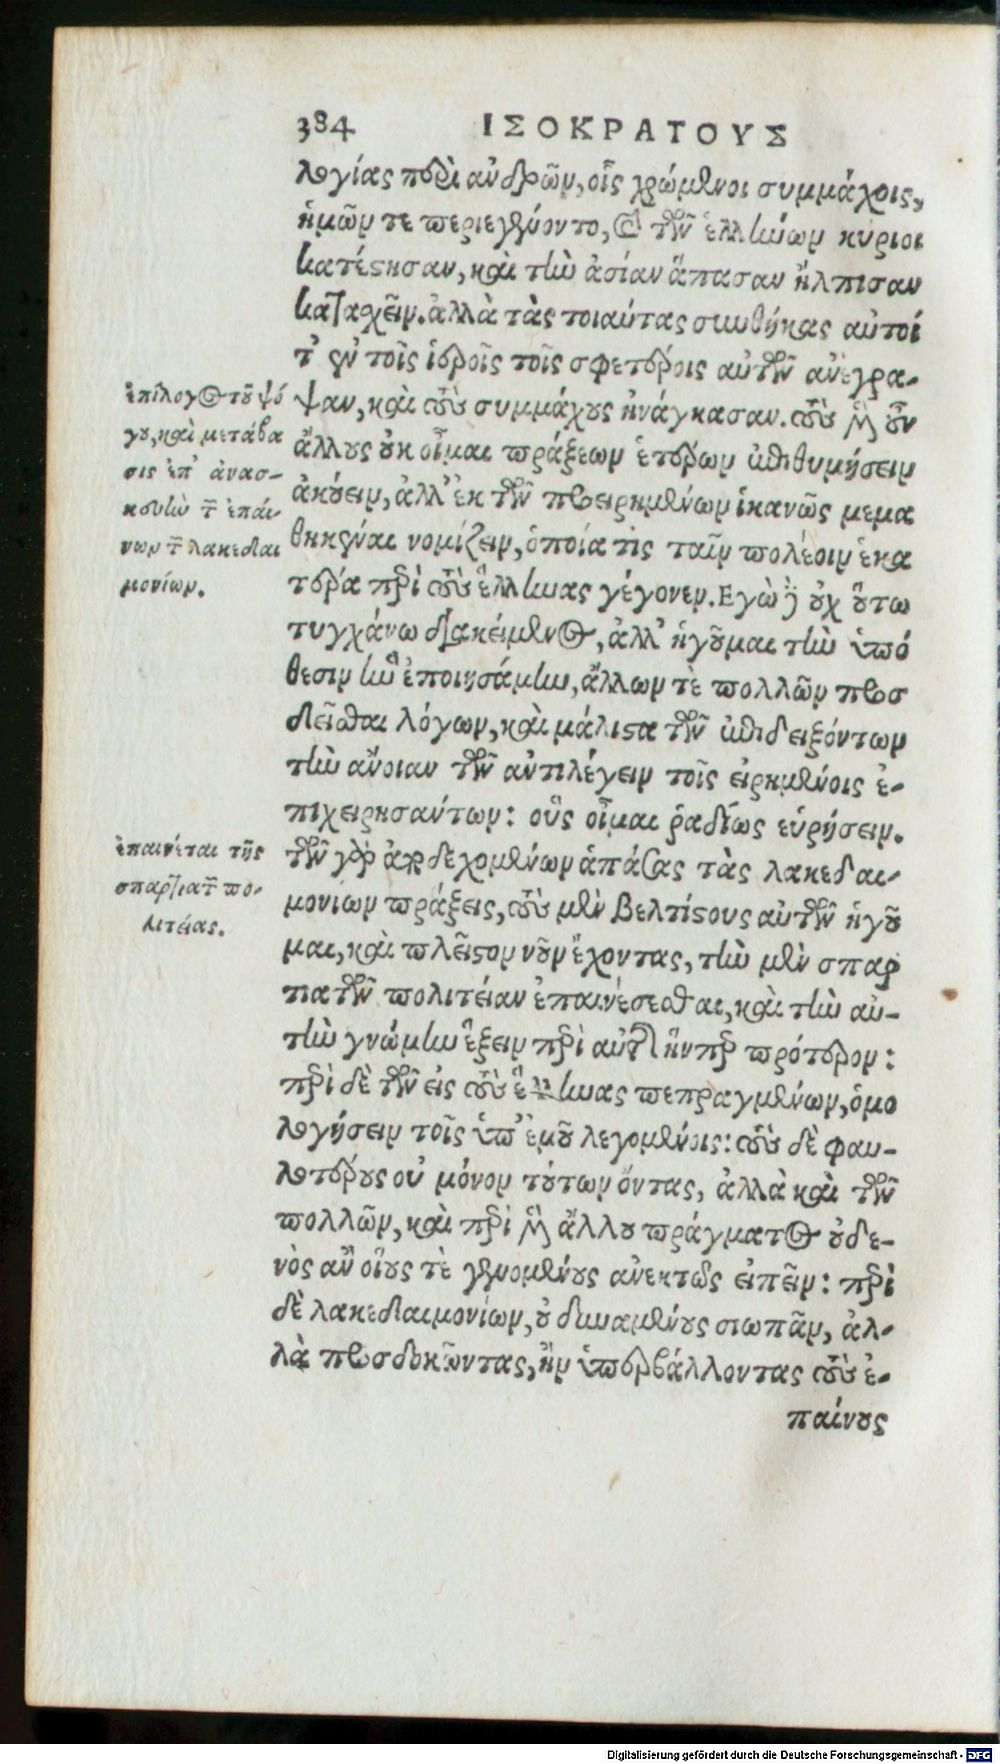 384 ΙΣΟΚΡΑΤΟΥΣ
λογίας περὶ ἀνδρῶν, οἷς χρώμενοι συμμάχοις,
ἡμῶν τε περιεγένοντο, καὶ τῶν ἑλλήνων κύριοι
κατέστησαν, καὶ τὴν ἀσίαν ἅπασαν ἤλπισαν
καθέξειν. ἀλλὰ τὰς τοιαύτας συνθήκας αὐτοί
τ' ἐν τοῖς ἱεροῖς τοῖς σφετέροις αὐτῶν ἀνέγρα-
ψαν, καὶ τοὺς συμμάχους ἠνάγκασαν. τοὺς μὲν οὖν
ἄλλους οὐκ οἶμαι πράξεων ἑτέρων ἐπιθυμήσειν
ἀκούειν, ἀλλ' ἐκ τῶν προειρημένων ἱκανῶς μεμα
θηκέναι νομίζειν, ὁποία τὶς ταῖν πολέοιν ἑκα
τέρα περὶ τοὺς ἕλληνας γέγονεν. Εγὼ δ' οὐχ οὕτω
τυγχάνω διακείμενος, ἀλλ' ἡγοῦμαι τὴν ὑπό
θεσιν ἣν ἐποιησάμην, ἄλλων τὲ πολλῶν προσ
δεῖσθαι λόγων, καὶ μάλιστα τῶν ἐπιδειξόντων
τὴν ἄνοιαν τῶν ἀντιλέγειν τοῖς εἰρημένοις ἐ-
πιχειρησάντων: οὓς οἶμαι ῥαδίως εὑρήσειν.
τῶν γὰρ ἀποδεχομένων ἁπάσας τὰς λακεδαι-
μονίων πράξεις, τοὺς μὲν βελτίστους αὐτῶν ἡγοῦ
μαι, καὶ πλεῖστον νοῦν ἔχοντας, τὴν μὲν σπαρ
τιατῶν πολιτείαν ἐπαινέσεσθαι, καὶ τὴν αὐ-
τὴν γνώμην ἕξειν περὶ αὐτῆς ἥνπερ πρότερον:
περὶ δὲ τῶν εἰς τοὺς ἕλληνας πεπραγμένων, ὁμο
λογήσειν τοῖς ὑπ' ἐμοῦ λεγομένοις: τοὺς δὲ φαυ-
λοτέρους οὐ μόνον τούτων ὄντας, ἀλλὰ καὶ τῶν
πολλῶν, καὶ περὶ μὲν ἄλλου πράγματος οὐδε-
νὸς ἂν οἵους τὲ γενομένους ἀνεκτῶς εἰπεῖν: περὶ
δὲ λακεδαιμονίων, οὐ δυναμένους σιωπᾶν, ἀλ-
λὰ προσδοκῶντας, ἢν ὑπερβάλλοντας τοὺς ἐ-
παίνους
ἐπίλογος τοῦ ψό
γου, καὶ μετάβα
σις ἐπ' ἀνασ-
κευὴν τῶν ἐπαί-
νων τῶν λακεδαι
μονίων.
ἐπαινέται τῆς
σπαρτιατῶν πο-
λιτείας.
Digitalisierung gefördert durch die Deutsche Forschungsgemeinschaft - DFG